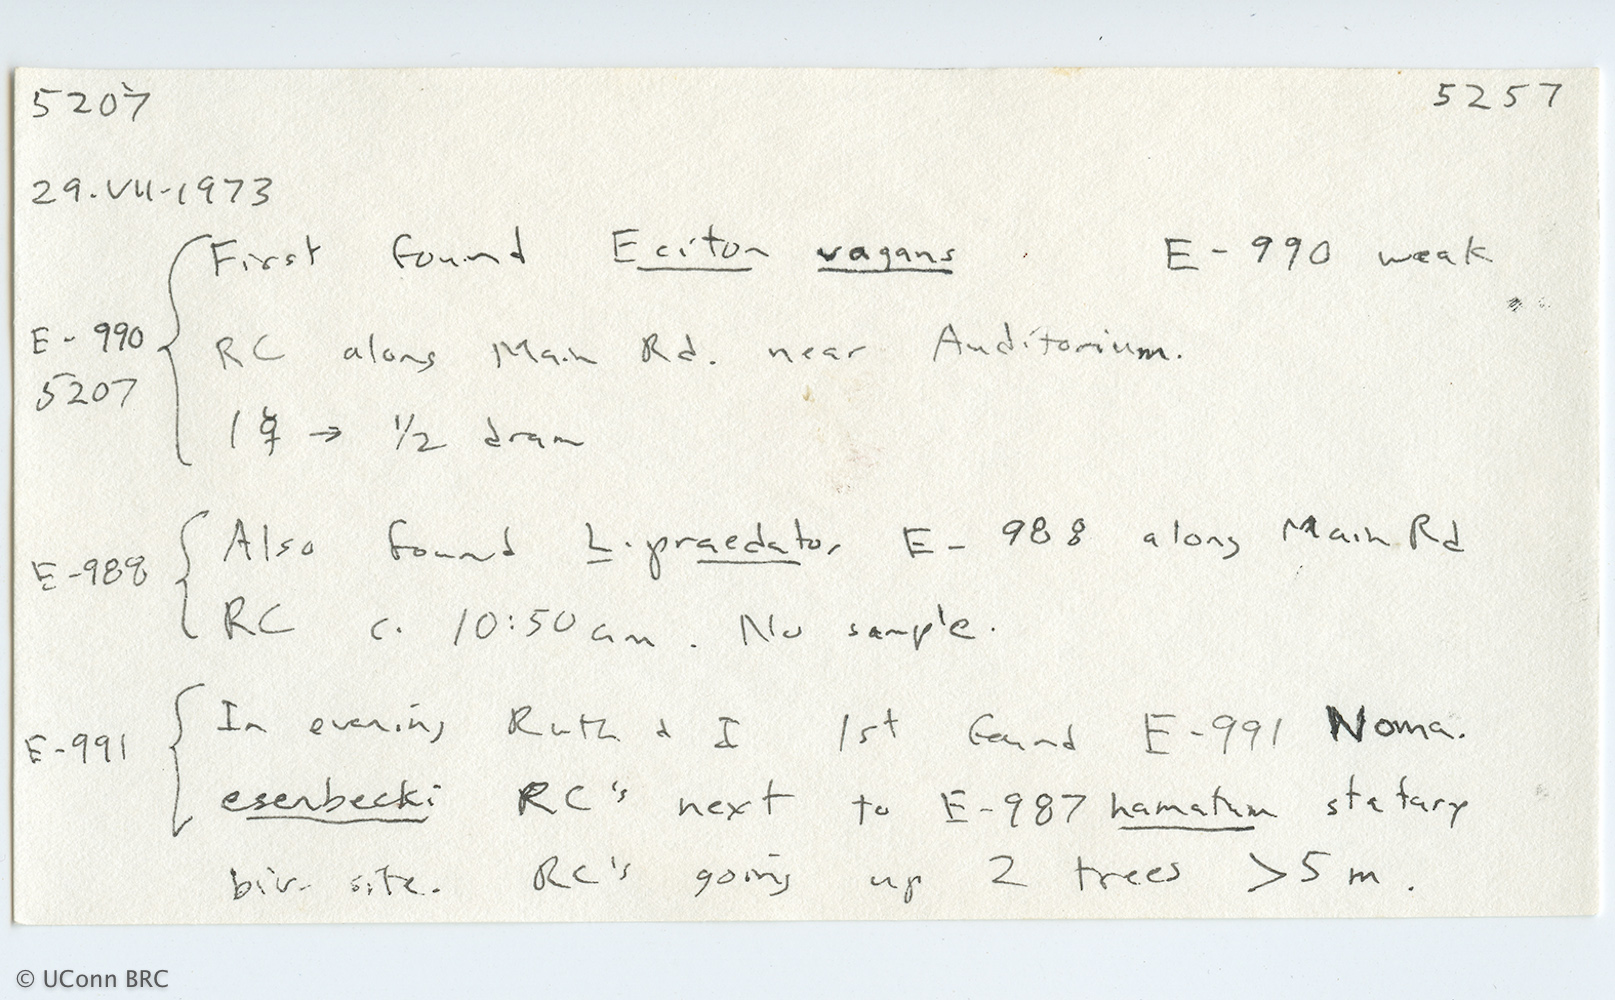 5207 5257
29.VII-1973
First found Eciton vagans E-990 weak
E-990
5207
RC along Main Rd. near Auditorium.
1 ☿ → 1/2 dram
Also found L. praedator E-988 along Main Rd
E-988
RC c. 10:50 am. No sample.
In evening Ruth & I 1st found E-991 Noma.
E-991
esenbecki RC's next to E-987 hamatum statary
biv. site. RC's going up 2 trees >5 m.
© UConn BRC